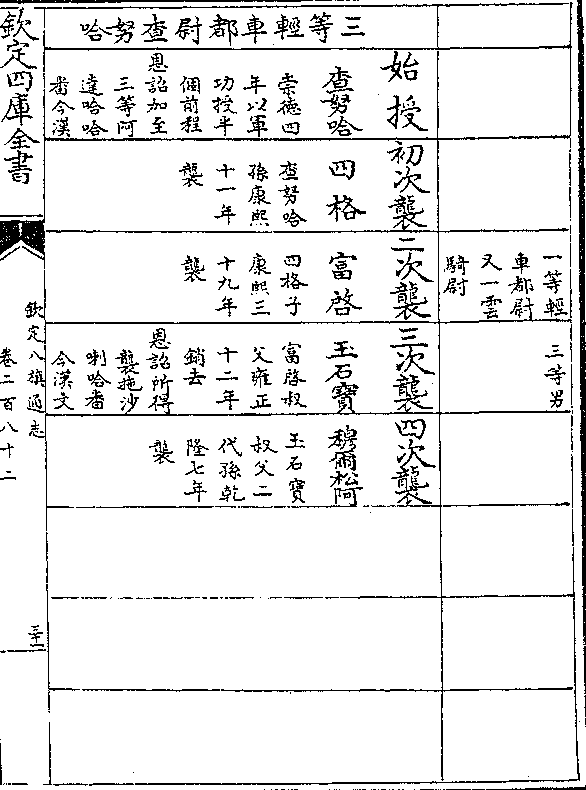 一等輕
車都尉
又一雲
騎尉
三等男
三等輕車都尉查努哈
始授
查努哈
崇德四
年以軍
功授半
個前程
恩詔加至
三等阿
達哈哈
番今漢
初次襲
四格
查努哈
孫康熙
十一年
襲
二次襲
富啓
四格子
康熙三
十九年
襲
三次襲
玉石寶
富啓叔
父雍正
十二年
銷去
恩詔所得
襲拖沙
喇哈番
今漢文
四次襲
穆爾松阿
玉石寶
叔父二
代孫乾
隆七年
襲
欽定四庫全書
欽定八旗通志
卷二百八十二
三十一